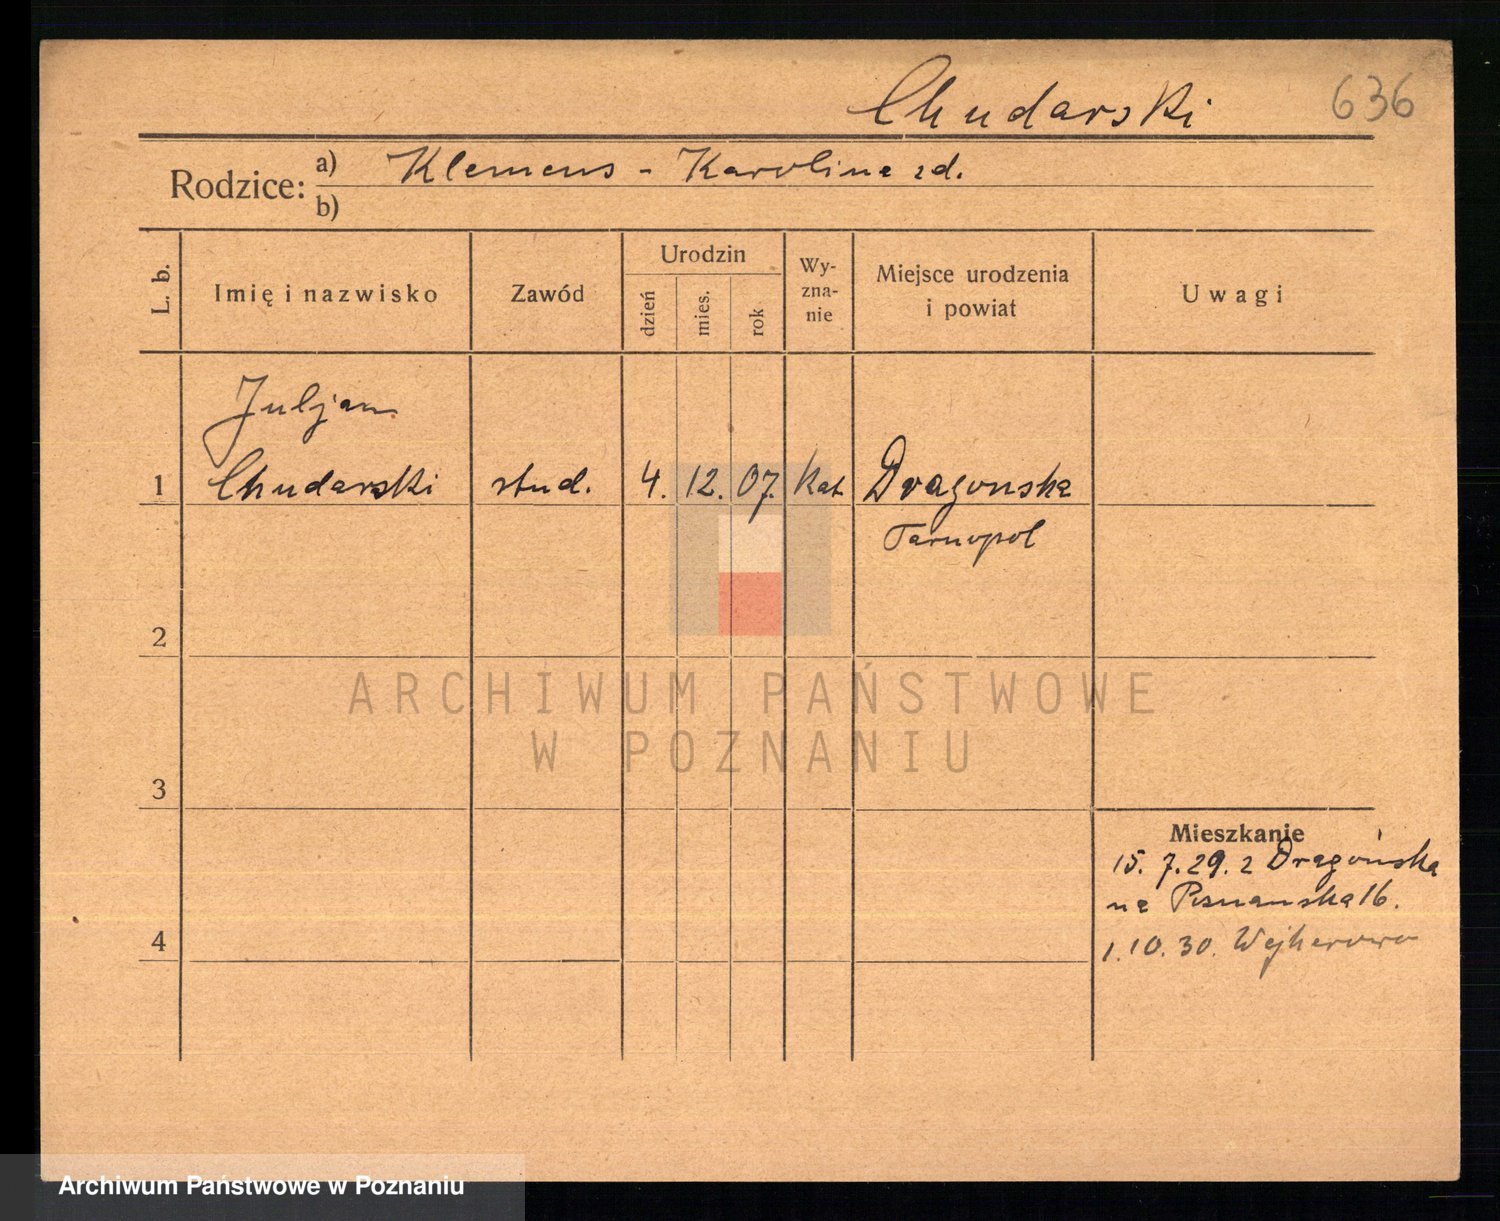 Chudarski 636
Rodzice: a) Klemens - Karolina zd.
b)
L. b. Imię i nazwisko Zawód Urodzin dzień mies. rok Wy-zna-nie Miejsce urodzenia i powiat Uwagi
Juljan
1 Chudarski stud. 4. 12. 07. Kat Dragonska
Tarnopol
2
ARCHIWUM PAŃSTWOWE
W POZNANIU
3
Mieszkanie
15. 7. 29. z Dragońska
na Poznanska 16.
4 1. 10. 30. Wejherowo
Archiwum Państwowe w Poznaniu